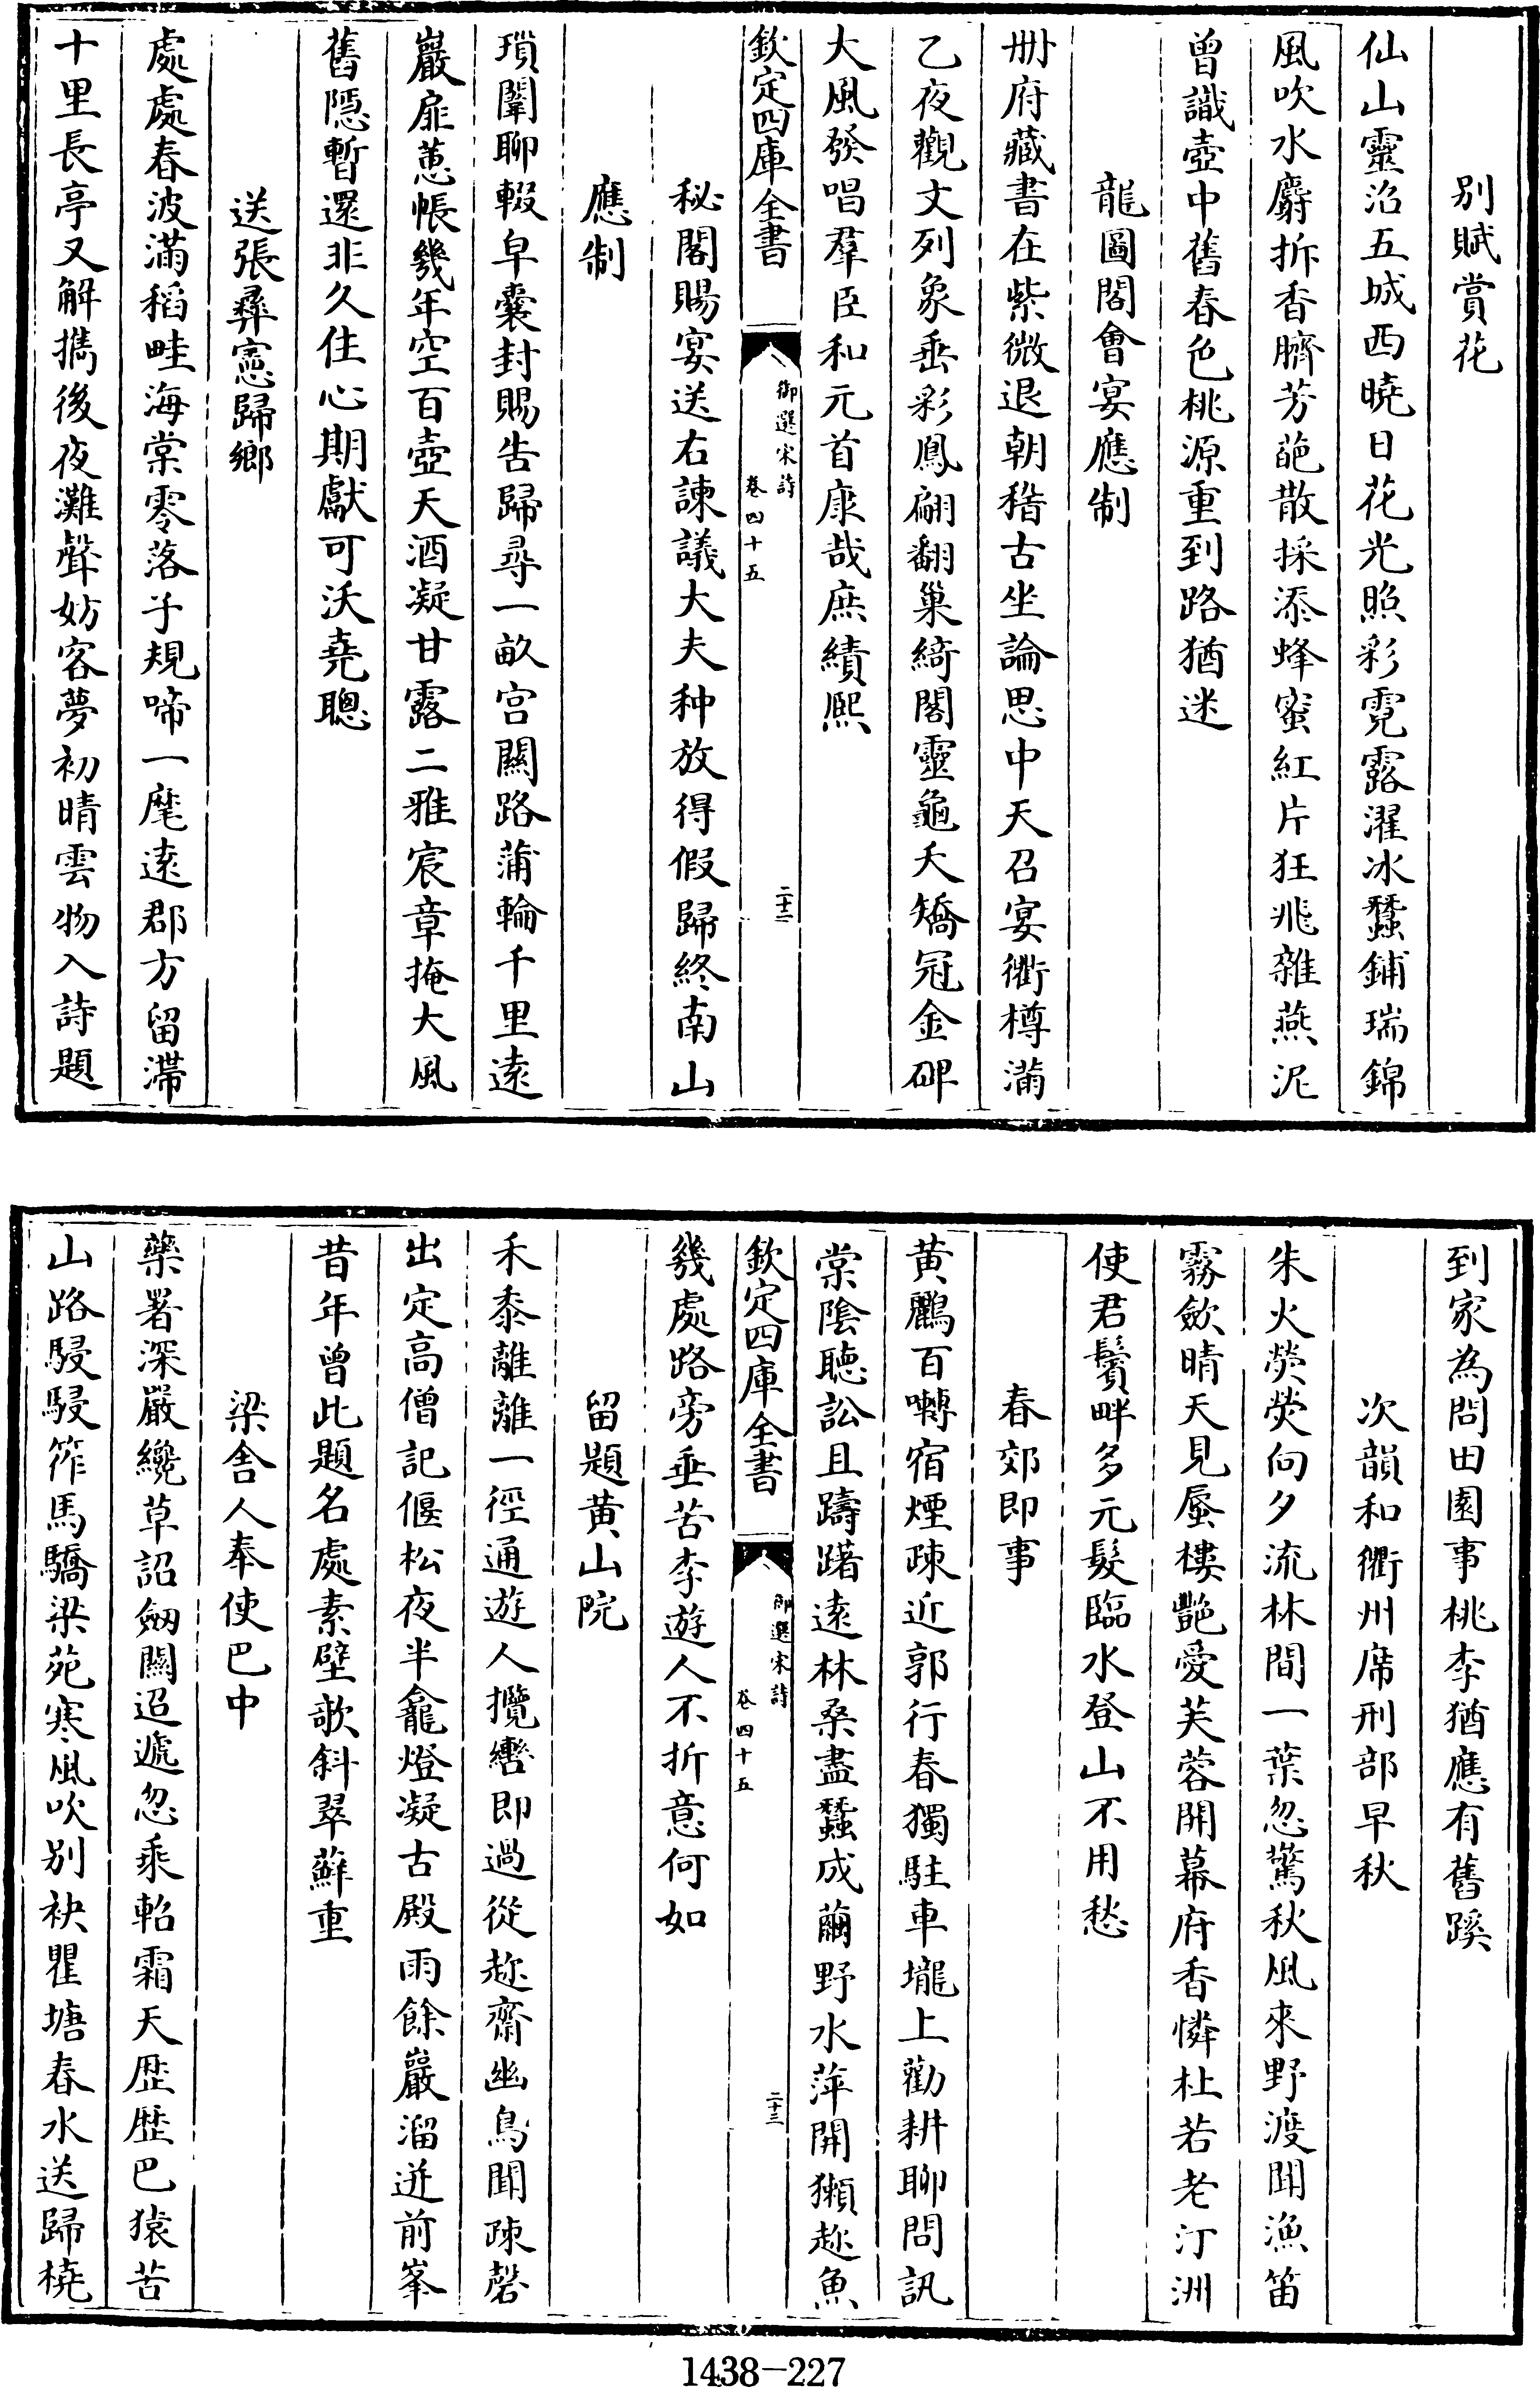 別賦賞花
仙山靈沼五城西曉日花光照彩霓露濯冰蠶鋪瑞錦
風吹水麝拆香臍芳葩散採添蜂蜜紅片狂飛雜燕泥
曾識壺中舊春色桃源重到路猶迷
龍圖閣會宴應制
冊府藏書在紫微退朝稽古坐論思中天召宴衢樽滿
乙夜觀文列象垂彩鳳翩翻巢綺閣靈龜夭矯冠金碑
大風發唱羣臣和元首康哉庶績熙
欽定四庫全書
御選宋詩
卷四十五
二十二
秘閣賜宴送右諫議大夫种放得假歸終南山
應制
瑣闈聊輟皁囊封賜告歸尋一畝宮闕路蒲輪千里遠
巖扉蕙帳幾年空百壺天酒凝甘露二雅宸章掩大風
舊隱暫還非久住心期獻可沃堯聰
送張彝憲歸鄉
處處春波滿稻畦海棠零落子規啼一麾遠郡方留滯
十里長亭又解攜後夜灘聲妨客夢初晴雲物入詩題
到家為問田園事桃李猶應有舊蹊
次韻和衢州席刑部早秋
朱火熒熒向夕流林間一葉忽驚秋風來野渡聞漁笛
霧斂晴天見蜃樓艷愛芙蓉開幕府香憐杜若老汀洲
使君鬢畔多元髮臨水登山不用愁
春郊即事
黃鸝百囀宿煙疎近郭行春獨駐車壠上勸耕聊問訊
棠陰聽訟且躊躇遠林桑盡蠶成繭野水萍開獺趂魚
欽定四庫全書
御選宋詩
卷四十五
二十三
幾處路旁垂苦李遊人不折意何如
留題黃山院
禾黍離離一徑通遊人攬轡即過從趂齋幽鳥聞疎磬
出定高僧記偃松夜半龕燈凝古殿雨餘巖溜迸前峯
昔年曾此題名處素壁欹斜翠蘚重
梁舍人奉使巴中
藥署深嚴纔草詔劒關迢遞忽乘軺霜天歷歷巴猿苦
山路駸駸筰馬驕梁苑寒風吹別袂瞿塘春水送歸橈
1438-227